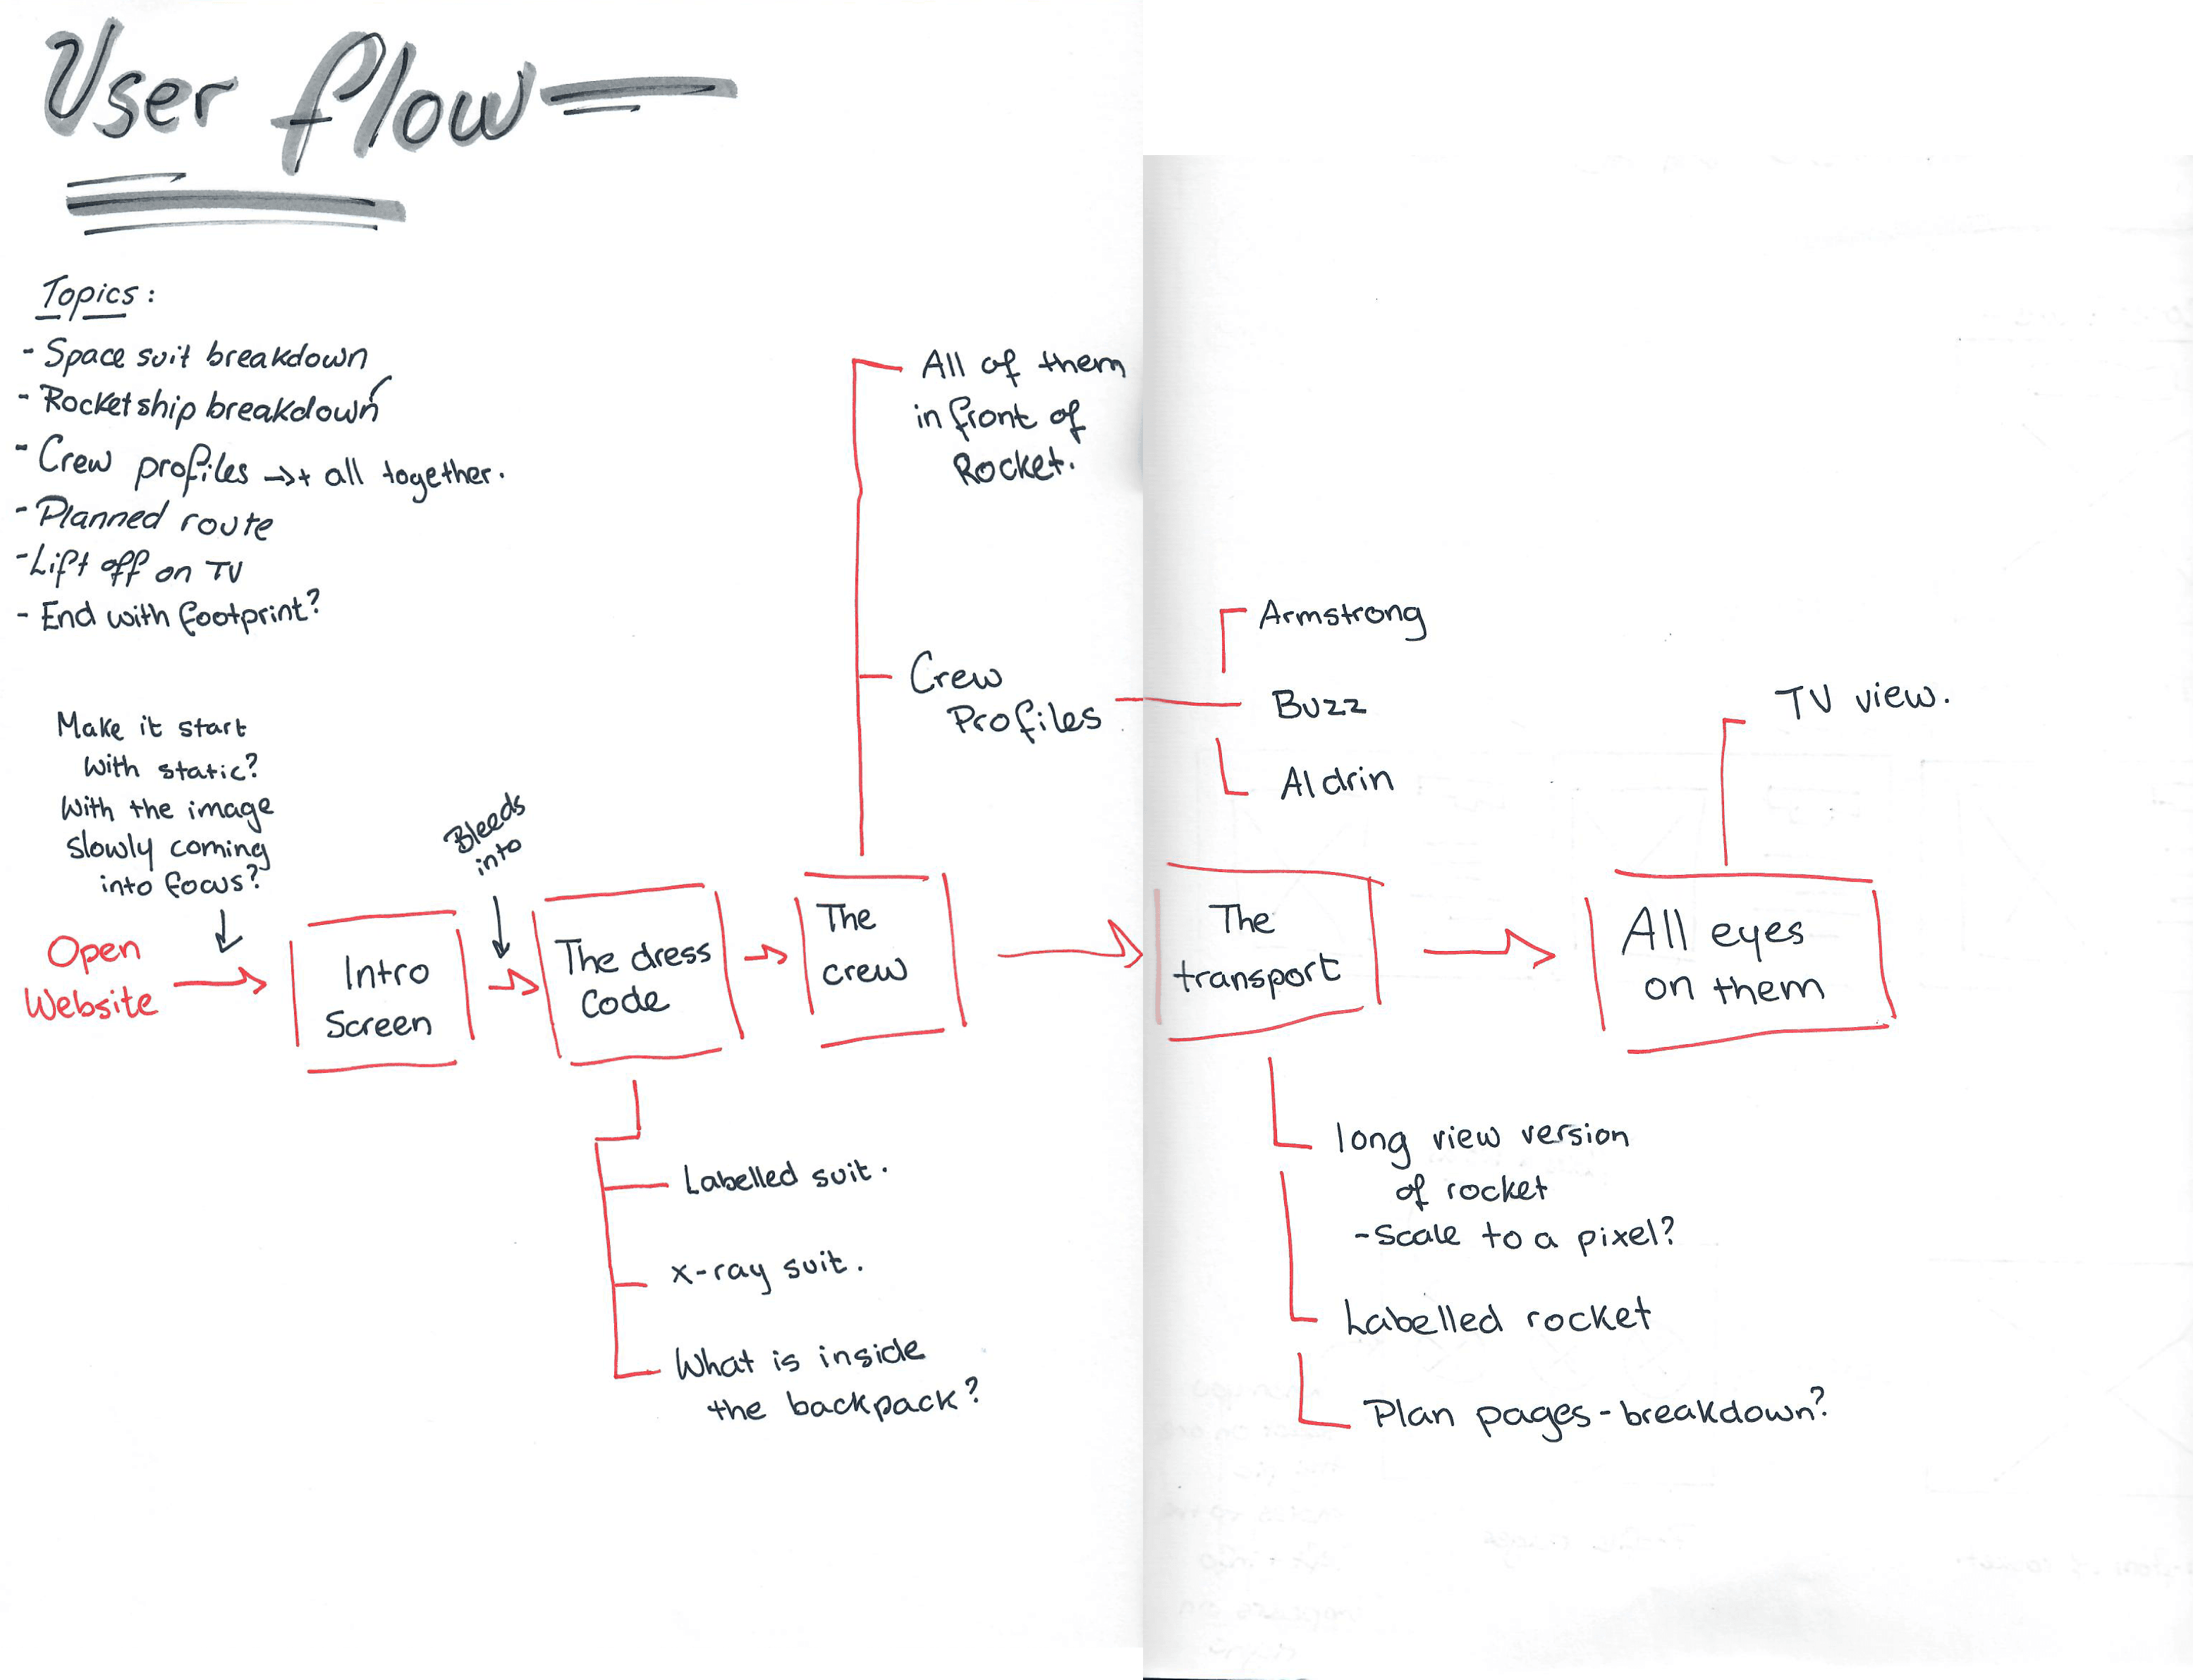 User flow
Topics:
- Space suit breakdown
- Rocketship breakdown
- Crew profiles → + all together.
- Planned route
- Lift off on TV
- End with footprint?
Make it start
with static?
With the image
slowly coming
into focus?
Open
Website
Intro
Screen
Bleeds
into
The dress
Code
Labelled suit.
x-ray suit.
What is inside
the backpack?
The
crew
All of them
in front of
Rocket.
Crew
Profiles
Armstrong
Buzz
Aldrin
The
transport
long view version
of rocket
- Scale to a pixel?
Labelled rocket
Plan pages - breakdown?
All eyes
on them
TV view.